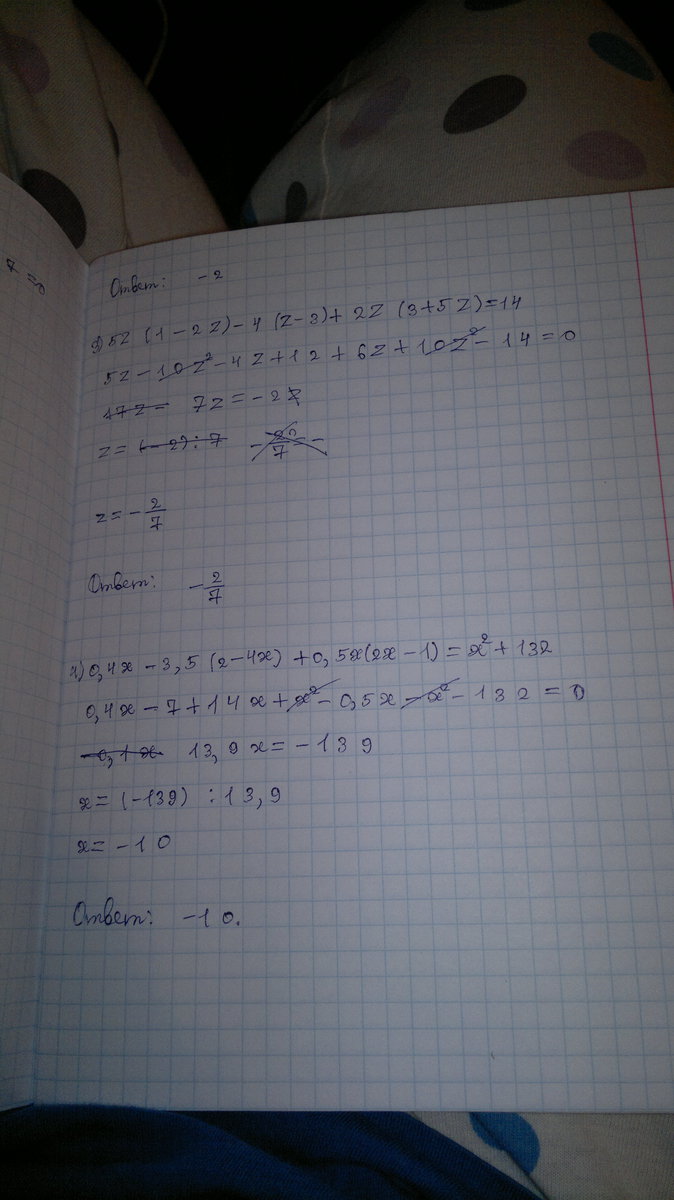 7 = 0
Ответ: -2
3) 5z (1-2z)-4 (z-3)+ 2z (3+5z)=14
5z-10z²-4z+12+6z+10z²-14=0
17z= 7z=-2
z= (-2):7
z=-2/7
Ответ: -2/7
4) 0,4x-3,5 (2-4x)+0,5x(2x-1)=x²+132
0,4x-7+14x+x²-0,5x-x²-132=0
-0,1x 13,9x=-139
x=(-139) :13,9
x=-10
Ответ: -10.